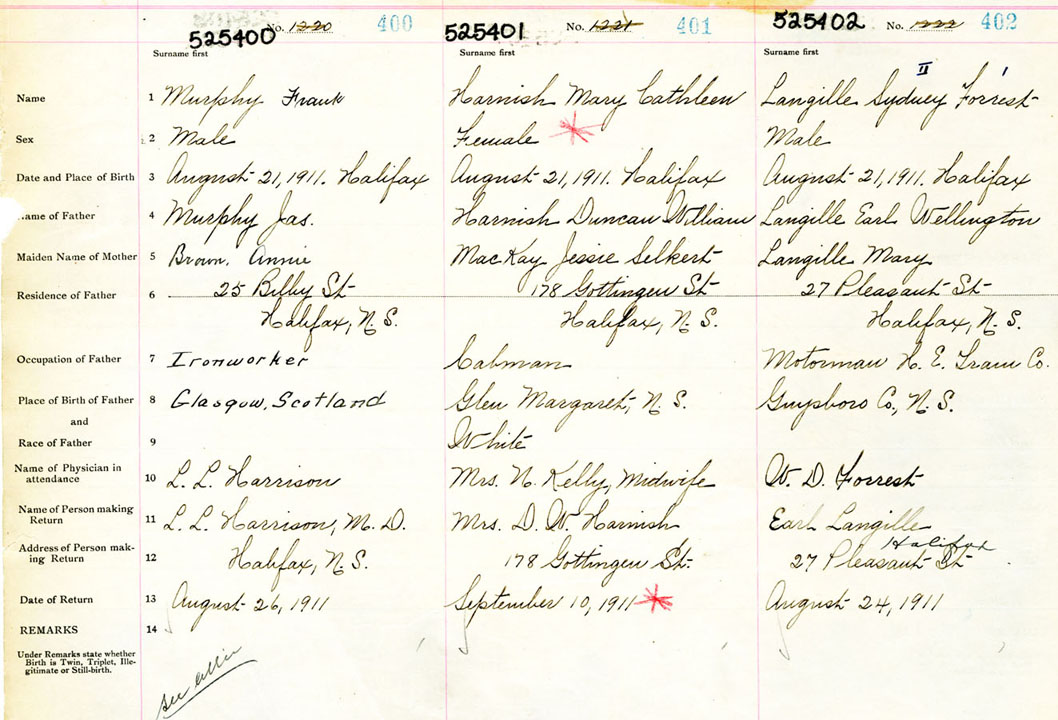 525400 No. 1220 400 525401 No. 1221 401 525402 No. 1222 402
Surname first Surname first Surname first
II I
Name 1 Murphy Frank Harnish Mary Cathleen Langille Sydney Forrest
Sex 2 Male Female Male
Date and Place of Birth 3 August 21, 1911. Halifax August 21, 1911. Halifax August 21, 1911. Halifax
Name of Father 4 Murphy Jas. Harnish Duncan William Langille Earl Wellington
Maiden Name of Mother 5 Brown, Annie MacKay Jessie Selkert Langille Mary
Residence of Father 6 25 Bilby St 178 Gottingen St 27 Pleasant St
Halifax, N. S. Halifax, N. S. Halifax, N. S.
Occupation of Father 7 Ironworker Cabman Motorman H. E. Tram Co.
Place of Birth of Father 8 Glasgow, Scotland Glen Margaret, N. S. Guysboro Co., N. S.
and
Race of Father 9 White
Name of Physician in
attendance 10 L. L. Harrison Mrs. N. Kelly, Midwife W. D. Forrest
Name of Person making
Return 11 L. L. Harrison, M. D. Mrs. D. W. Harnish Earl Langille
Halifax
Address of Person mak-
ing Return 12 Halifax, N. S. 178 Gottingen St. 27 Pleasant St
Date of Return 13 August 26, 1911 September 10, 1911 August 24, 1911
REMARKS 14
Under Remarks state whether
Birth is Twin, Triplet, Ille-
gitimate or Still-birth.
see